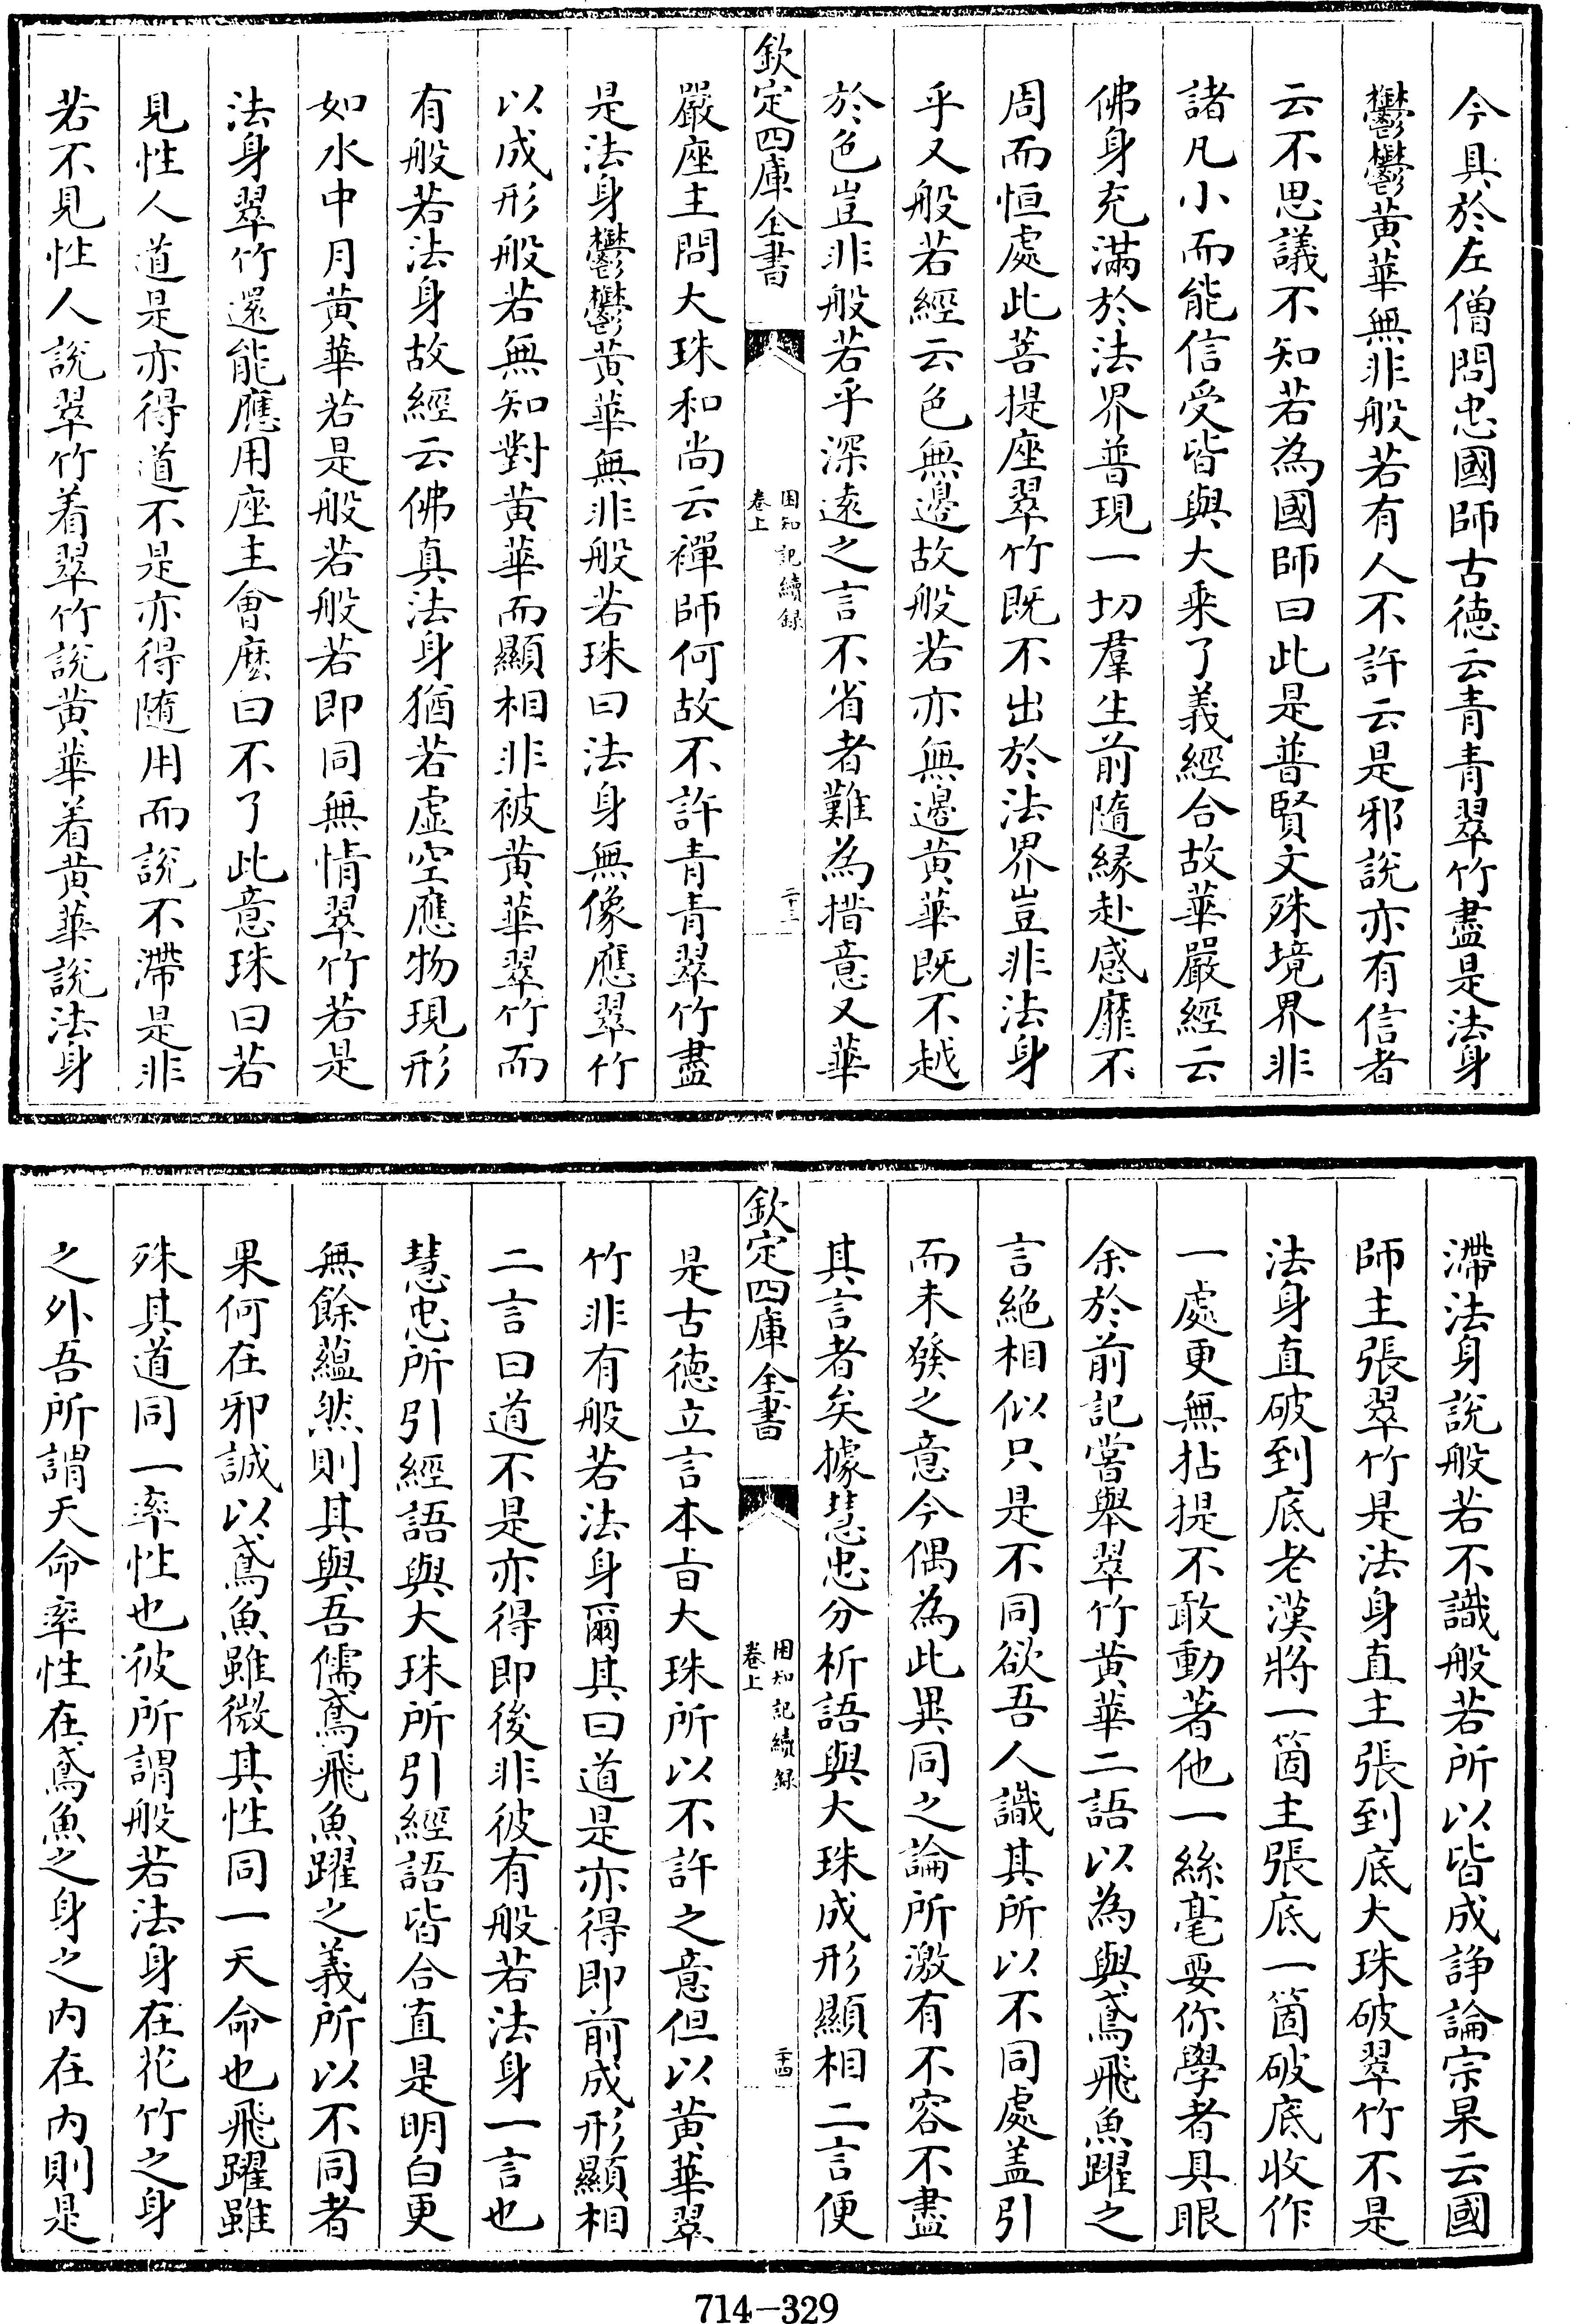 今具於左僧問忠國師古徳云青青翠竹盡是法身
鬱鬱黄華無非般若有人不許云是邪說亦有信者
云不思議不知若為國師曰此是普賢文殊境界非
諸凡小而能信受皆與大乘了義經合故華嚴經云
佛身充滿於法界普現一切羣生前隨縁赴感靡不
周而恒處此菩提座翠竹既不出於法界豈非法身
乎又般若經云色無邊故般若亦無邊黄華既不越
於色豈非般若乎深逺之言不省者難為措意又華
欽定四庫全書
困知記續録
卷上
二十三
嚴座主問大珠和尚云禪師何故不許青青翠竹盡
是法身鬱鬱黄華無非般若珠曰法身無像應翠竹
以成形般若無知對黄華而顯相非被黄華翠竹而
有般若法身故經云佛真法身猶若虚空應物現形
如水中月黄華若是般若般若即同無情翠竹若是
法身翠竹還能應用座主會麽曰不了此意珠曰若
見性人道是亦得道不是亦得隨用而說不滯是非
若不見性人說翠竹着翠竹說黄華着黄華說法身
滯法身說般若不識般若所以皆成諍論宗杲云國
師主張翠竹是法身直主張到底大珠破翠竹不是
法身直破到底老漢將一箇主張底一箇破底收作
一處更無拈提不敢動著他一絲毫要你學者具眼
余於前記嘗舉翠竹黄華二語以為與鳶飛魚躍之
言絶相似只是不同欲吾人識其所以不同處盖引
而未發之意今偶為此異同之論所激有不容不盡
其言者矣據慧忠分析語與大珠成形顯相二言便
欽定四庫全書
困知記續録
卷上
二十四
是古徳立言本旨大珠所以不許之意但以黄華翠
竹非有般若法身爾其曰道是亦得即前成形顯相
二言曰道不是亦得即後非彼有般若法身一言也
慧忠所引經語與大珠所引經語皆合直是明白更
無餘藴然則其與吾儒鳶飛魚躍之義所以不同者
果何在邪誠以鳶魚雖微其性同一天命也飛躍雖
殊其道同一率性也彼所謂般若法身在花竹之身
之外吾所謂天命率性在鳶魚之身之内在内則是
714-329